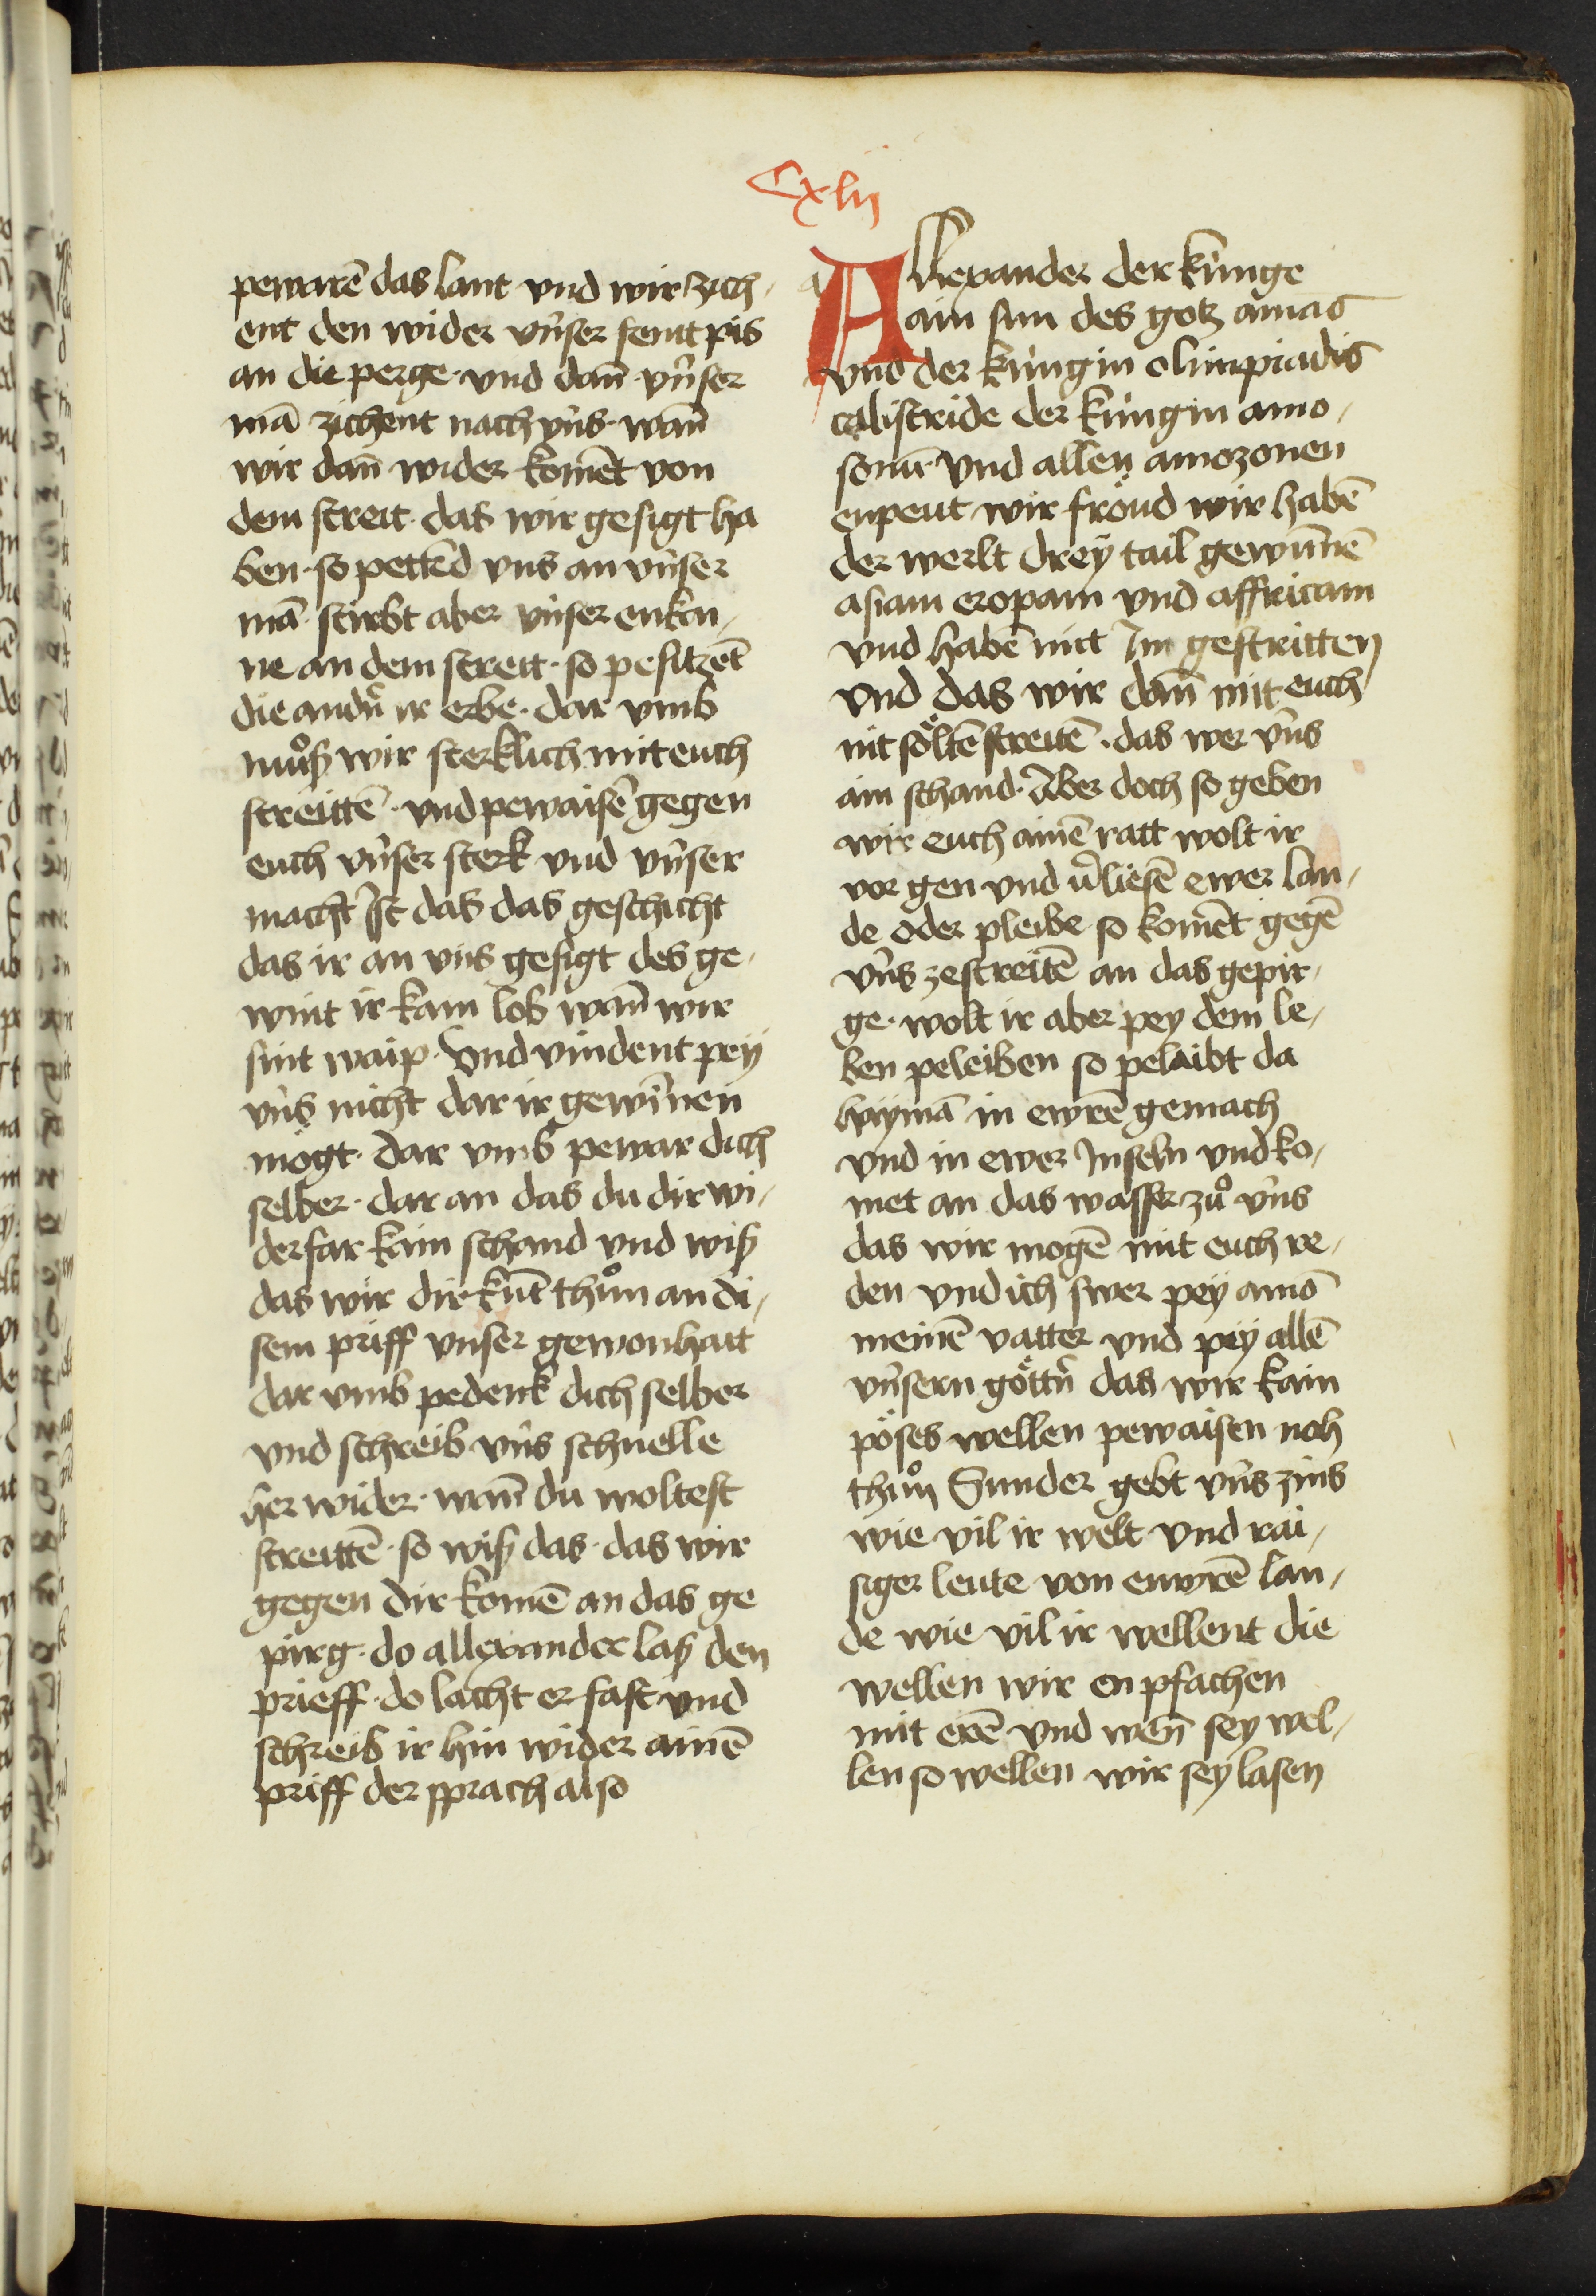 Cxlij
pewarē das lant vnd wir zich-
ent den wider vnser feintt pis
an die perge · vnd dan̄ vnser
mā zichent nach vns · wan̄
wir dan̄ wider komēt von
dem streit · das wir gesigt ha
ben · so pettēd vns an vnser
mā · stirbt aber vnser enkai-
ne an dem streit · so pesitzēt
die andn̄ ir erbe · dar vmb
muͦß wir sterklich mit euch
streittē · vnd pewaisē gegen
euch vnser sterk vnd vnser
macht Ist das das geschicht
das ir an vns gesigt des ge-
wint ir kain lob wan̄ wir
sint waip · Vnd vindent peÿ
vns nicht dar ir gewinnen
mögt · dar vmb pewar dich
selber · dar an das du dir wi-
derfar kain schand vnd wiß
das wir dir kūt thuͦn an di-
sem priff vnser gewonhait
dar vmb pedenk dich selber
vnd schreib vns schnelle
her wider · wan̄ du woltest
streittē · so wiß das · das wir
gegen dir komē an das ge
pirg · do allexander laß den
prieff · do lacht er fast vnd
schreib ir hin wider ainē
priff der sprach also
Allexander der künge
ain sun des gotz amas
vnd der küngin olimpiadis
calistride der küngin amo-
sonū vnd allen amozonen
enpeut wir fröud wir habē
der werlt dreÿ tail gewunnē
asiam eropam vnd affricam
vnd habē mit Im gestritten
vnd das wir dan̄ mit euch
nit söltē streitē · das wer vns
ain schand · Aber doch so geben
wir euch ainē ratt wolt ir
vor gen vnd v̄liesē ewer lan-
de oder pleibe so komēt gegē
vns zestreitē an das gepir-
ge · wolt ir aber pey dem le-
ben peleiben so pelaibt da
in ewrē gemach
vnd in ewer Inseln vnd ko-
met an das wasser zuͦ vns
das wir mogē mit euch re-
den vnd ich swer peÿ amō
meinē vatter vnd peÿ allē
vnsern göttn̄ das wir kain
pöses wellen pewaisen noh
thuͦn Sunder gebt vns zins
wie vil ir welt vnd rai-
siger leute von ewrē lan-
de wie vil ir wellent die
wellen wir enpfachen
mit erē vnd wen̄ sey wel-
len so wellen wir sey lasen